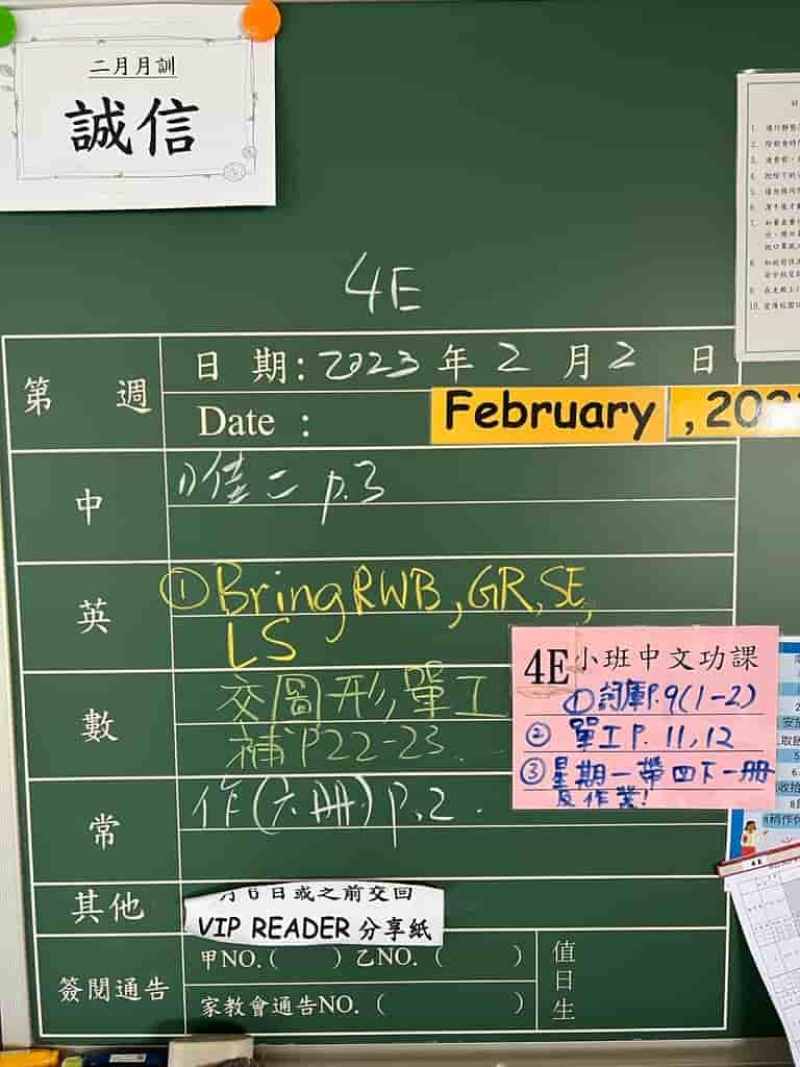 二月月訓
誠信
4E
第 週
日 期: 2023 年 2 月 2 日
Date :
February , 202
中
1) 佳二 p.3
英
① Bring RWB, GR, SE,
LS
數
交圖形,單工
補P22-23.
常
作(六冊) p.2.
4E小班中文功課
① 詞庫P.9(1-2)
② 單工P. 11,12
③ 星期一帶四下一冊
及作業!
其他
月6日或之前交回
VIP READER 分享紙
簽閱通告
甲NO.( ) 乙NO. ( )
家教會通告NO. ( )
值日生